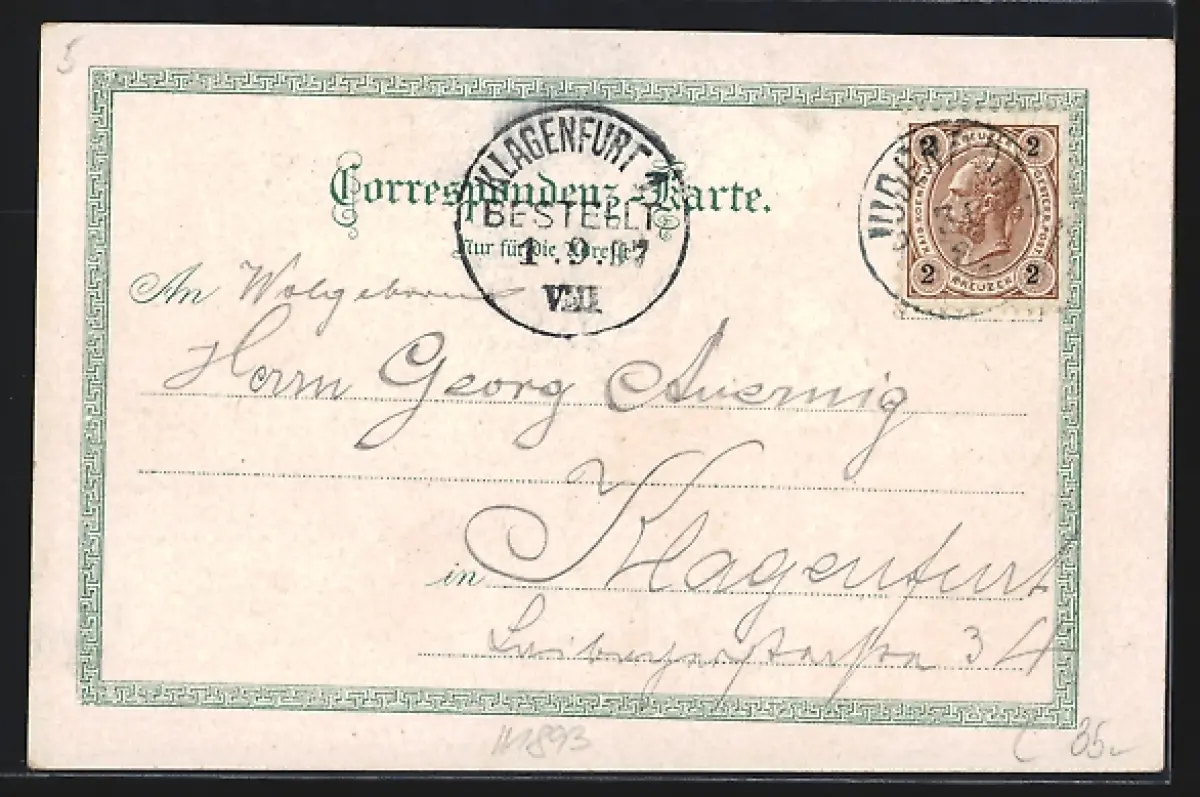 5
Correspondenz-Karte.
Nur für die Adresse
KLAGENFURT
BESTELLT
1.9.97
VIII.
2 KREUZER 2
2 KREUZER 2
An Wolgeboren
Herrn Georg Auernig
in Klagenfurt
34
111893
85.-